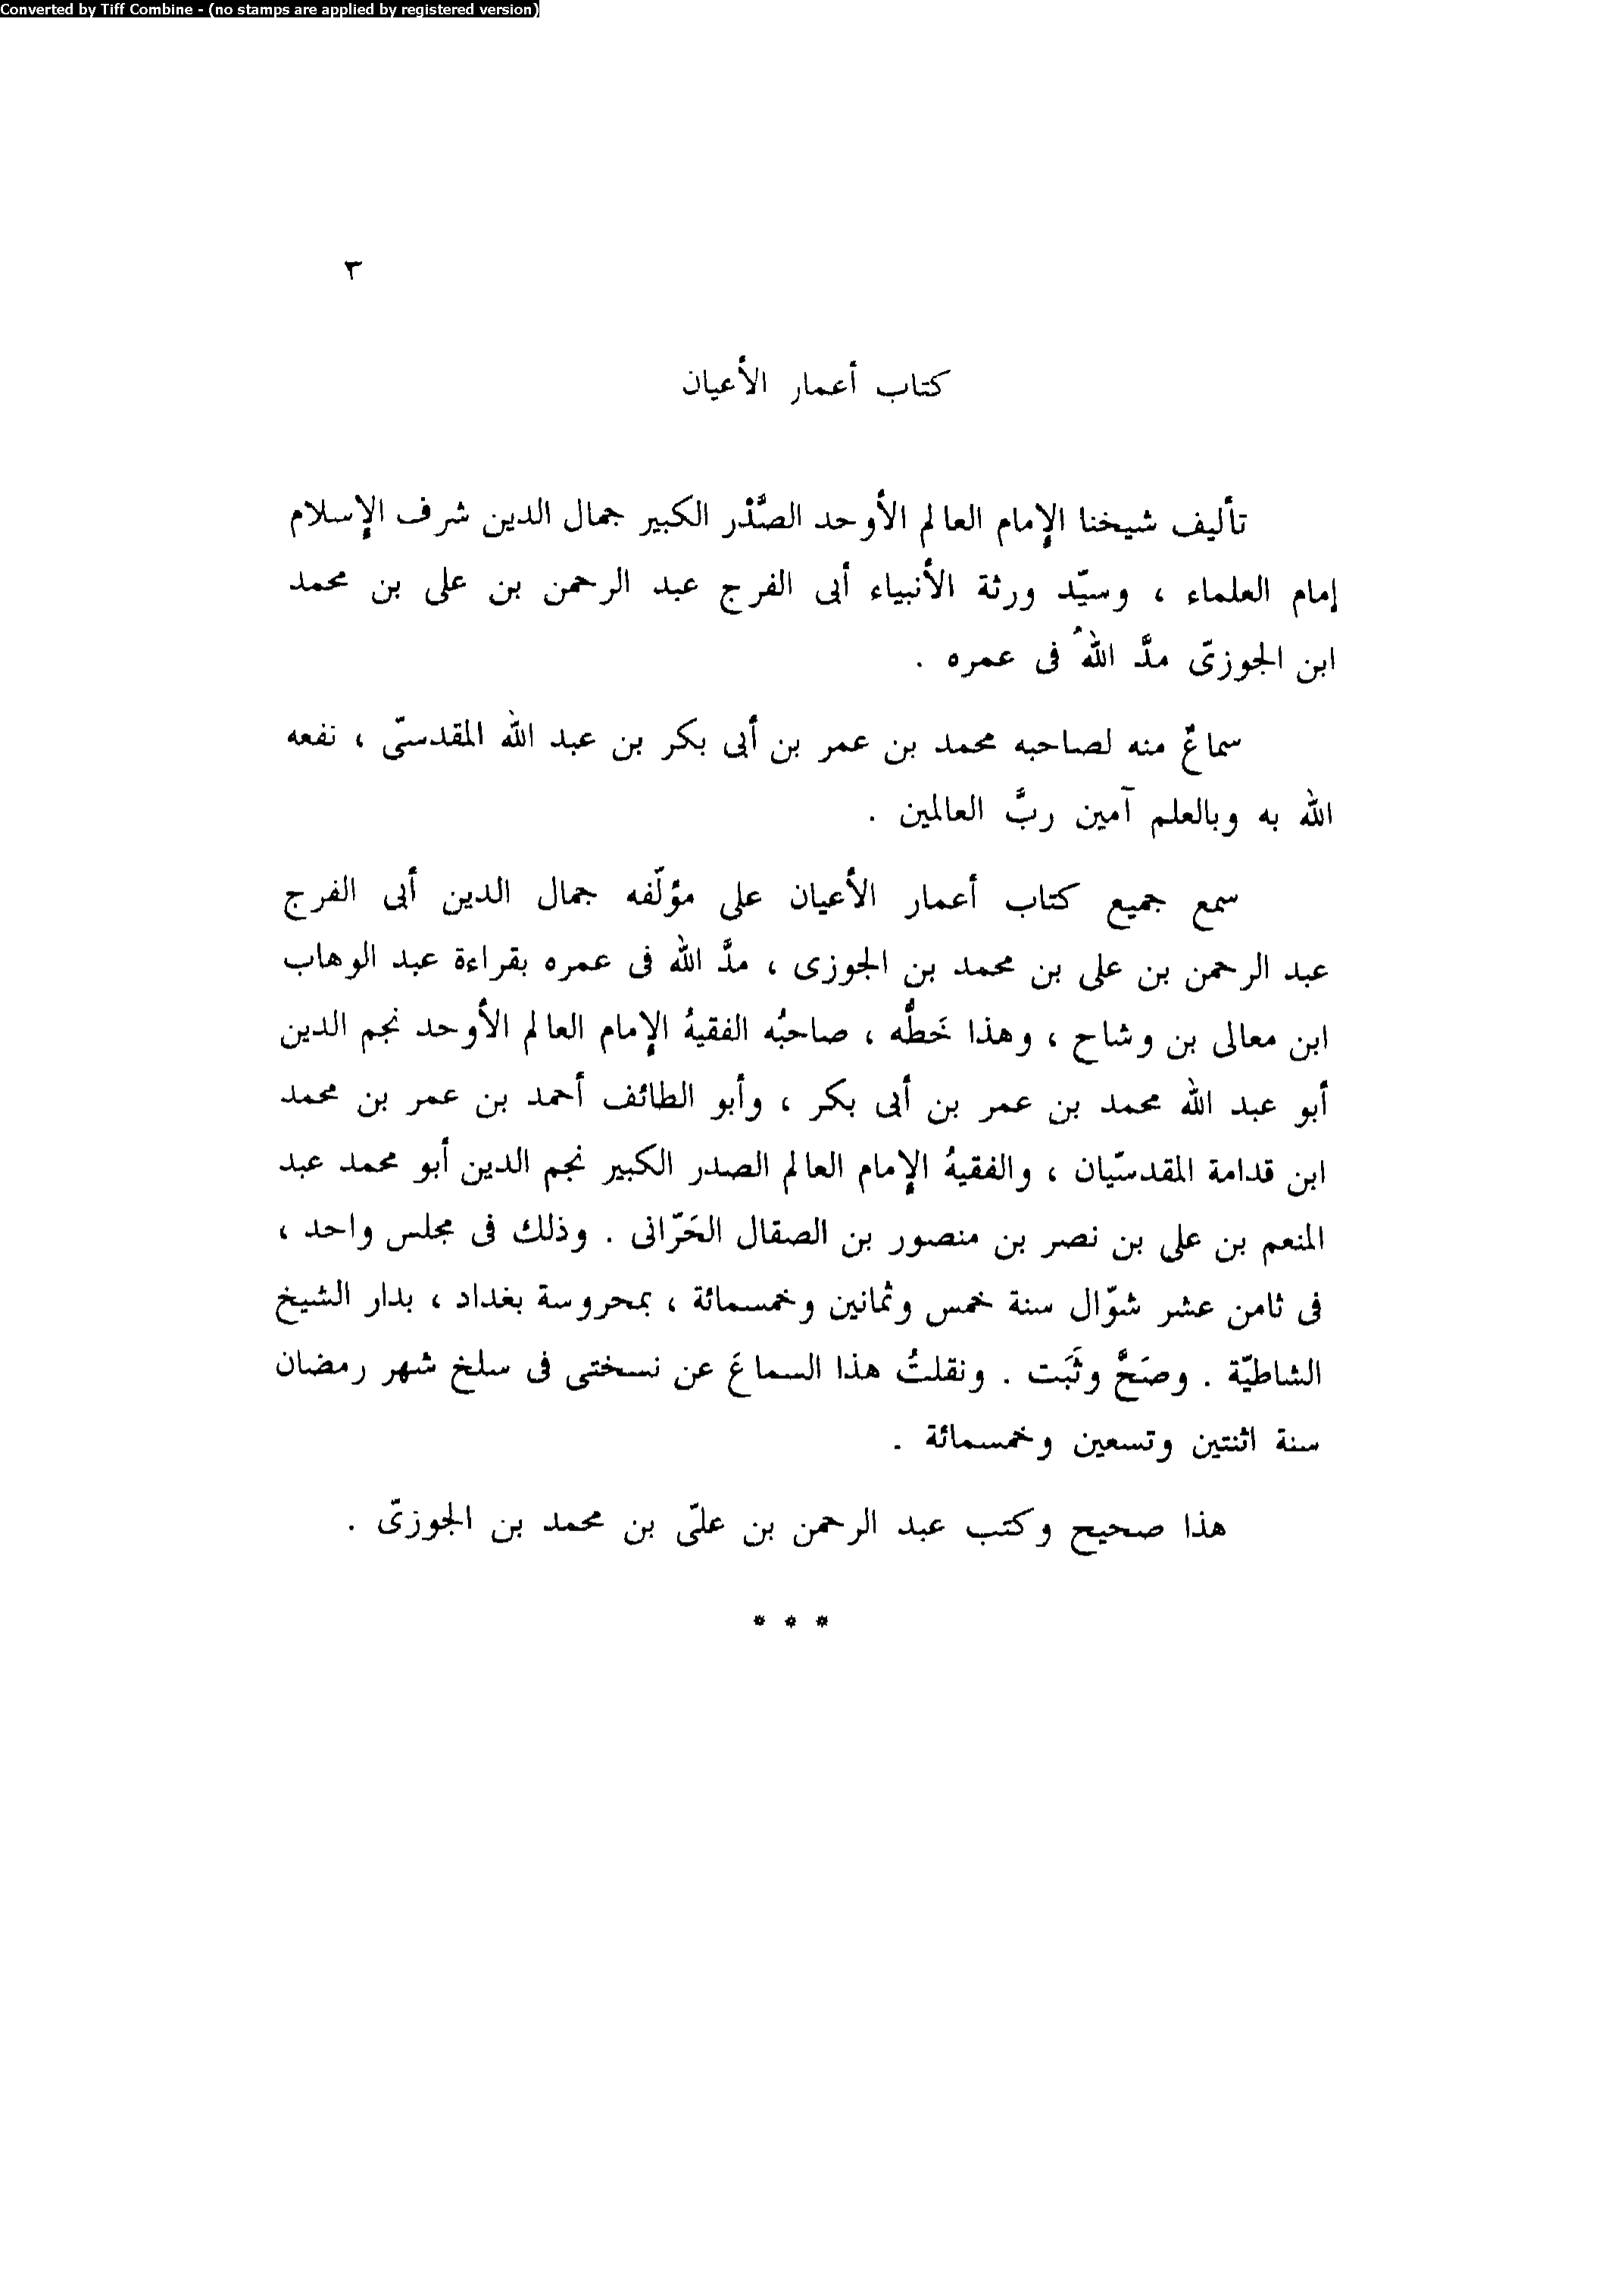 Converted by Tiff Combine - (no stamps are applied by registered version)
٣
كتاب أعمار الأعيان
تأليف شيخنا الإمام العالم الأوحد الصَّدْر الكبير جمال الدين شرف الإسلام
إمام العلماء ، وسيّد ورثة الأنبياء أبى الفرج عبد الرحمن بن على بن محمد
ابن الجوزىّ مدَّ اللهُ فى عمره .
سماعٌ منه لصاحبه محمد بن عمر بن أبى بكر بن عبد الله المقدسىّ ، نفعه
الله به وبالعلم آمين ربَّ العالمين .
سمع جميع كتاب أعمار الأعيان على مؤلّفه جمال الدين أبى الفرج
عبد الرحمن بن على بن محمد بن الجوزى ، مدَّ الله فى عمره بقراءة عبد الوهاب
ابن معالى بن وشاح ، وهذا خَطُّه ، صاحبُه الفقيهُ الإمام العالم الأوحد نجم الدين
أبو عبد الله محمد بن عمر بن أبى بكر ، وأبو الطائف أحمد بن عمر بن محمد
ابن قدامة المقدسّيان ، والفقيهُ الإمام العالم الصدر الكبير نجم الدين أبو محمد عبد
المنعم بن على بن نصر بن منصور بن الصقال الحَرّانى . وذلك فى مجلس واحد ،
فى ثامن عشر شوّال سنة خمس وثمانين وخمسمائة ، بمحروسة بغداد ، بدار الشيخ
الشاطيّة . وصَحَّ وثَبَت . ونقلتُ هذا السماعَ عن نسختى فى سلخ شهر رمضان
سنة اثنتين وتسعين وخمسمائة .
هذا صحيح وكتب عبد الرحمن بن علىّ بن محمد بن الجوزىّ .
* * *